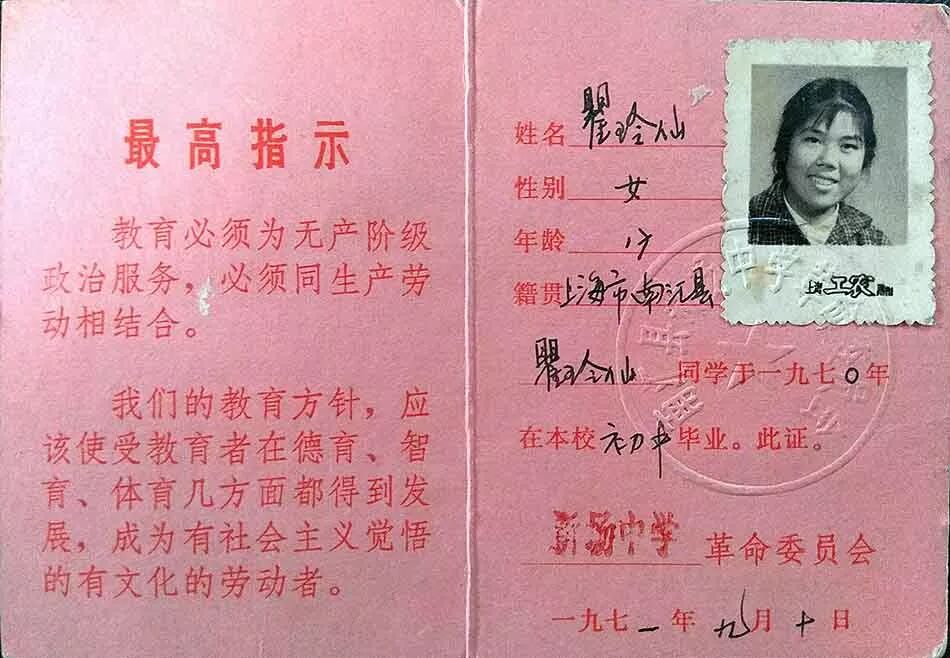 最高指示
教育必须为无产阶级
政治服务，必须同生产劳
动相结合。
我们的教育方针，应
该使受教育者在德育、智
育、体育几方面都得到发
展，成为有社会主义觉悟
的有文化的劳动者。
姓名 瞿玲仙
性别 女
年龄
籍贯 上海市南汇县
瞿玲仙 同学于一九七〇年
在本校初中毕业。此证。
新场中学 革命委员会
一九七一年九月十日
上海工农